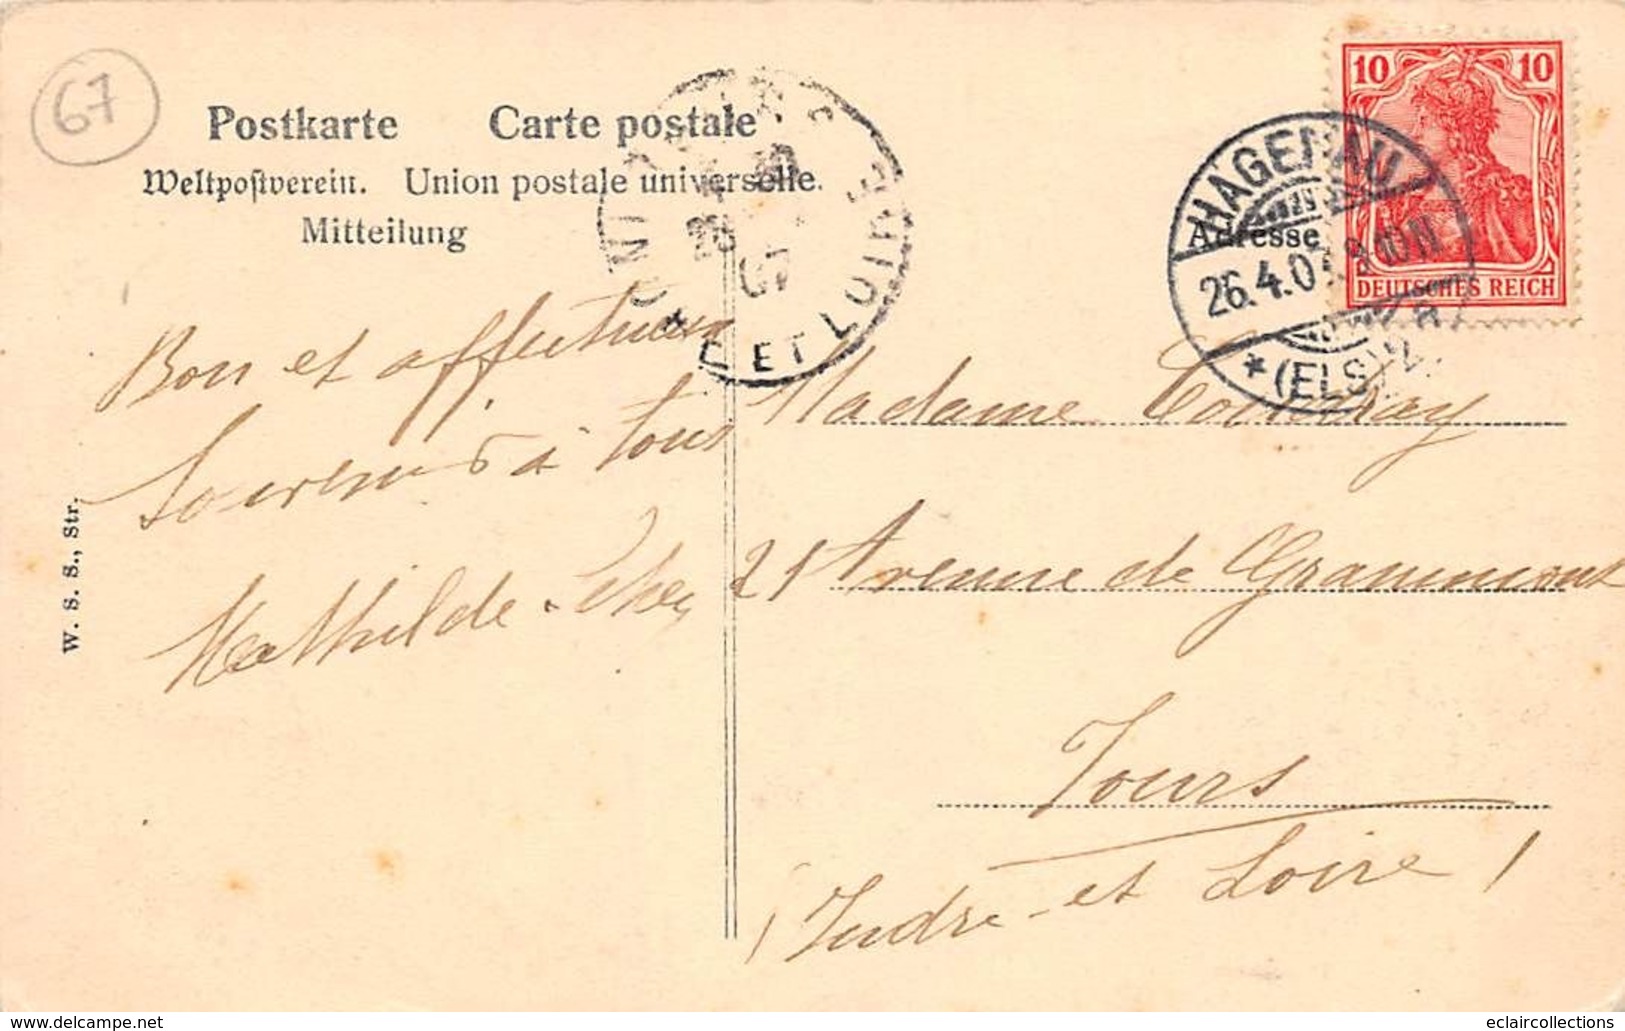 67
Postkarte Carte postale
Weltpostverein. Union postale universelle.
Mitteilung
Adresse
10 10
DEUTSCHES REICH
HAGENAU
26.4.0
* (ELS.)
ET LOIRE
07
Bon et affectueux
Souvenir à tous
Mathilde
Madame
21 Avenue de Grammont
Tours
(Indre-et Loire)
W. S. S., Str.
www.delcampe.net
eclaircollections